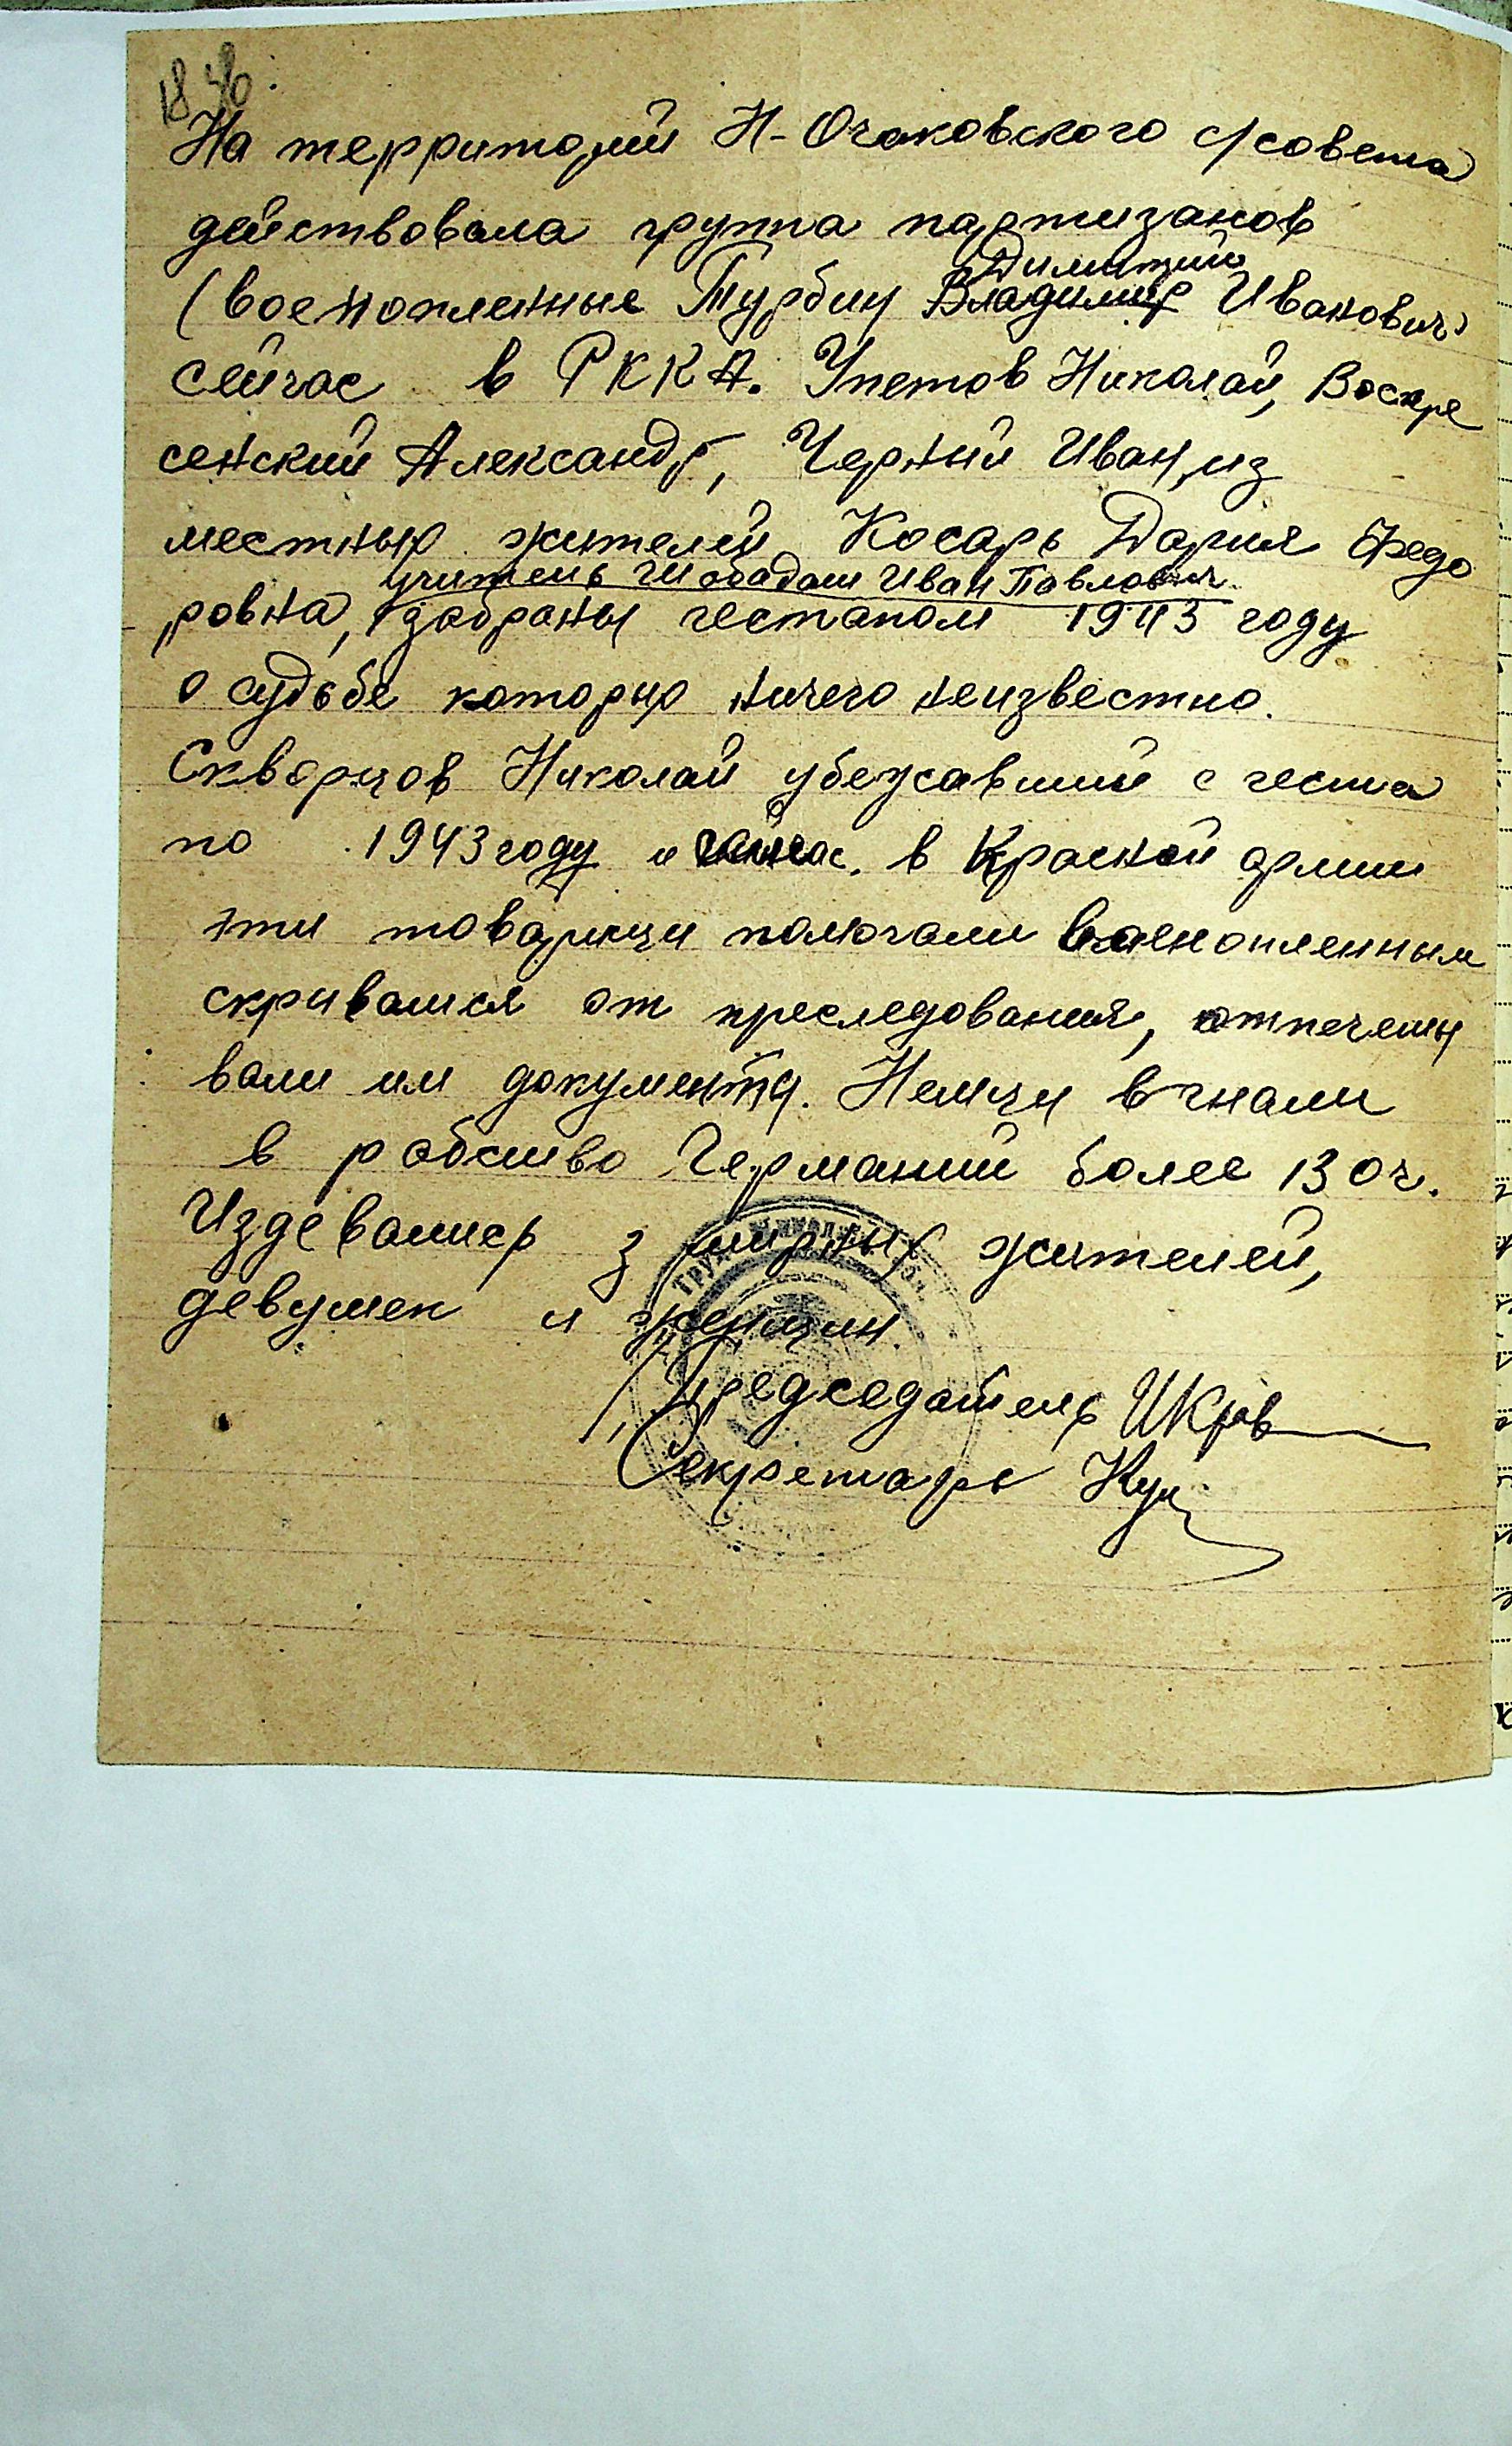 18 46.
На территорий Н-Очаковского с/совета
действовала группа партизанов
Димитрий
(военопленные Турбин Владимир Иванович
сейчас в РККА. Упетов Николай, Воскре
сенский Александр, Черний Иван, из
местных жителей Косарь Дария Федо
учитель Шобадаш Иван Павлович
ровна, забраны гестапом 1943 году
о судьбе которых ничего неизвестно.
Скворцов Николай убежавший с геста
по 1943 году и в Красной армии
эти товарищи помогали военопленным
скриватся от преследования,
вали им документы. Немцы вгнали
в рабство Германий более 130 ч.
Издевались з мирных жителей,
девушек и женщин.
Председатель
Секретарь